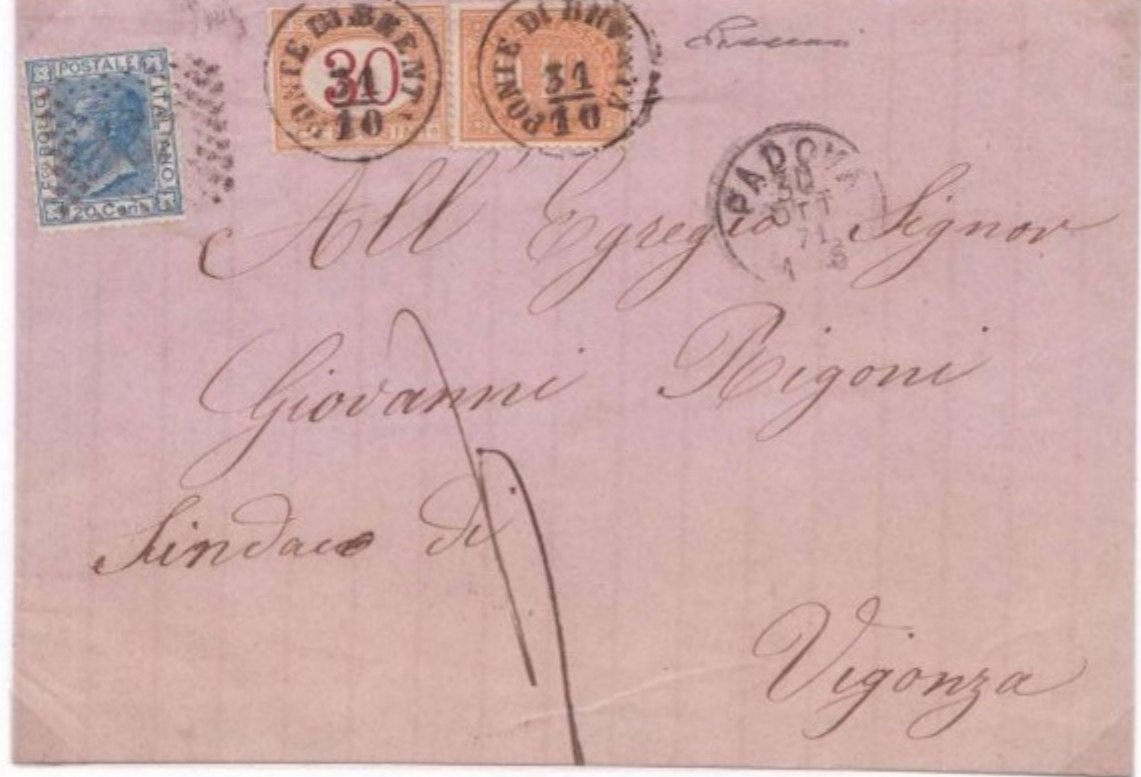 FCO BOLLO POSTALE ITALIANO
20 Cent
30
PONTE DI BRENTA
31
10
PONTE DI BRENTA
31
10
PADOVA
30
OTT
71
All' Egregio Signor
Giovanni Rigoni
Sindaco di
Vigonza